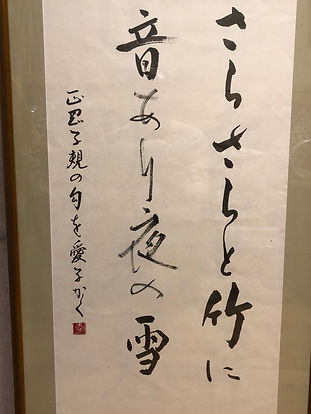 さらさらと竹に
音あり夜の雪
正岡子規の句を愛子かく